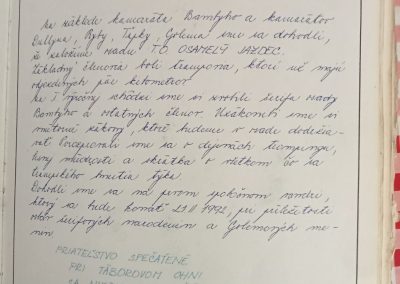 Na základe kamaráta Bambyho a kamarátov
Dullyna, Ryby, Tapky, Golema sme sa dohodli,
že založíme osadu T.O OSAMELÝ JAZDEC.
Základný členovia boli trampovia, ktorí už majú
odjazdených pár kilometrov.
Na I. výročnej schôdzi sme si zvolili šerifa osady
Bambyho a ostatných členov. Uzákonili sme si
vnútorné zákony, ktoré budeme v osade dodržia-
vať. Porozprávali sme sa o dejinách trampingu,
hory múdrosti a skrátka o všetkom čo sa
trampského hnutia týka.
Dohodli sme sa na prvom spoločnom vandri,
ktorý sa bude konať 21.II 1992, pri príležitosti
osláv šerifových narodenín a Golemových me-
nín
PRIATEĽSTVO SPEČATENÉ
PRI TÁBOROVOM OHNI
SA